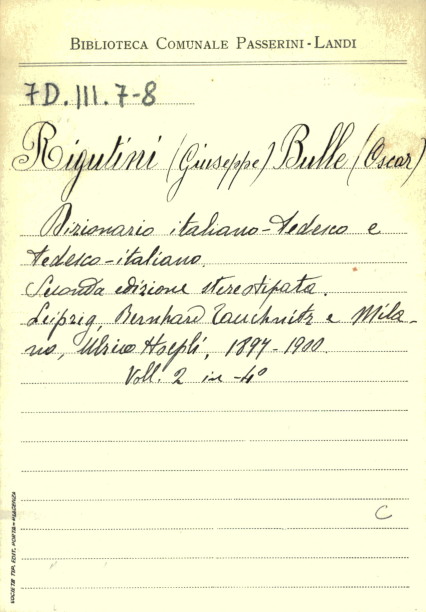 BIBLIOTECA COMUNALE PASSERINI-LANDI
7D.III.7-8
Rigutini (Giuseppe) Bulle (Oscar)
Dizionario italiano-tedesco e
tedesco-italiano.
Seconda edizione stereotipata.
Leipzig, Bernhard Tauchnitz e Mila-
no, Ulrico Hoepli, 1897-1900.
Voll. 2 in-4º
C
SOCIETÀ TIP. EDIT. PORTA - PIACENZA